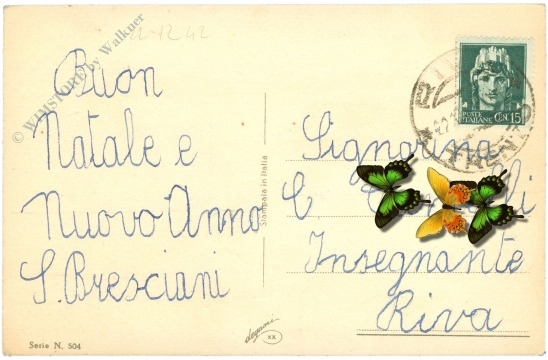 22-12 42
Buon
Natale e
Nuovo Anno
S. Bresciani
Serie N. 504
Stampata in Italia
degami
XX
POSTE
ITALIANE CEN. 15
Signorina
C
Insegnante
Riva
© WIMSTORE by Walkner